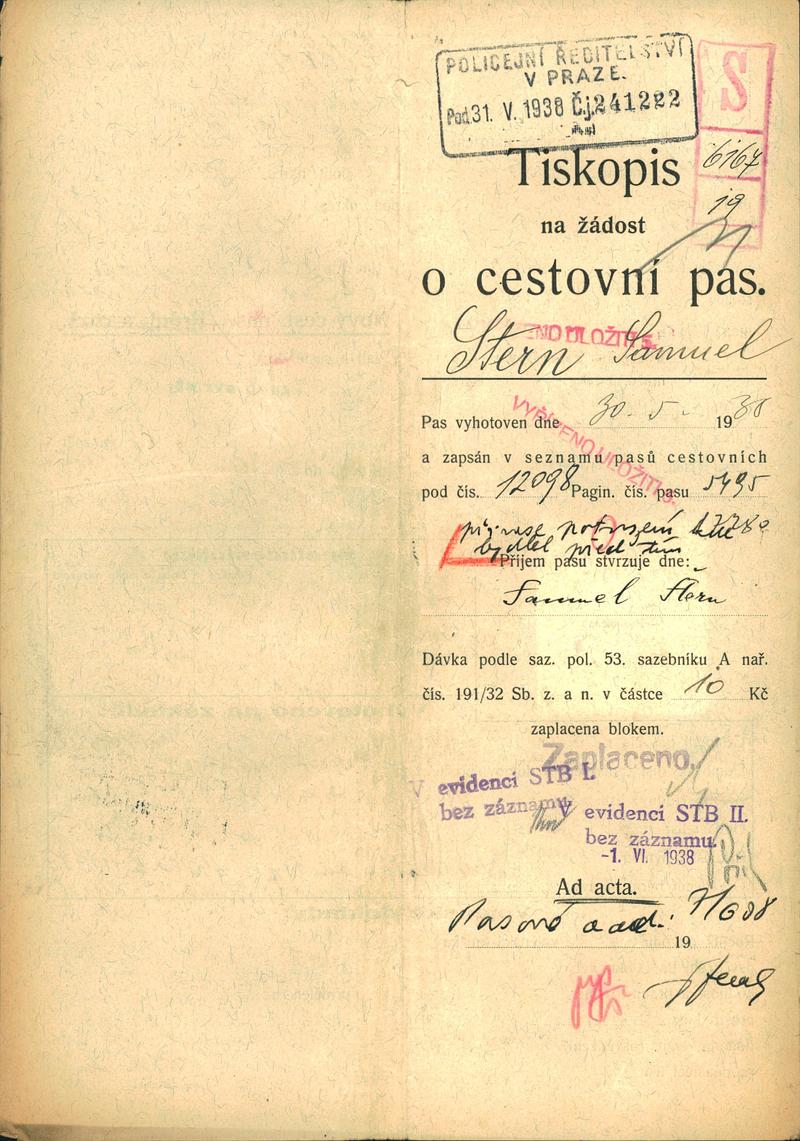 POLICEJNÍ ŘEDITELSTVÍ
V PRAZE.
Pod. 31. V. 1938 Čj. 241222
S
6167
19
Tiskopis
na žádost
o cestovní pas.
Stern Samuel
Pas vyhotoven dne 30. 5. 1938
VYŘÍZENO ULOŽITI
a zapsán v seznamu pasů cestovních
pod čís. 12098 Pagin. čís. pasu 5495
potvrzení kde
bydlel před tím
Příjem pasu stvrzuje dne:
Samuel Stern
Dávka podle saz. pol. 53. sazebníku A nař.
čís. 191/32 Sb. z. a n. v částce 10 Kč
zaplacena blokem.
Zaplaceno.
V evidenci STB I.
bez záznamu
V evidenci STB II.
bez záznamu.
-1. VI. 1938
Ad acta.
19